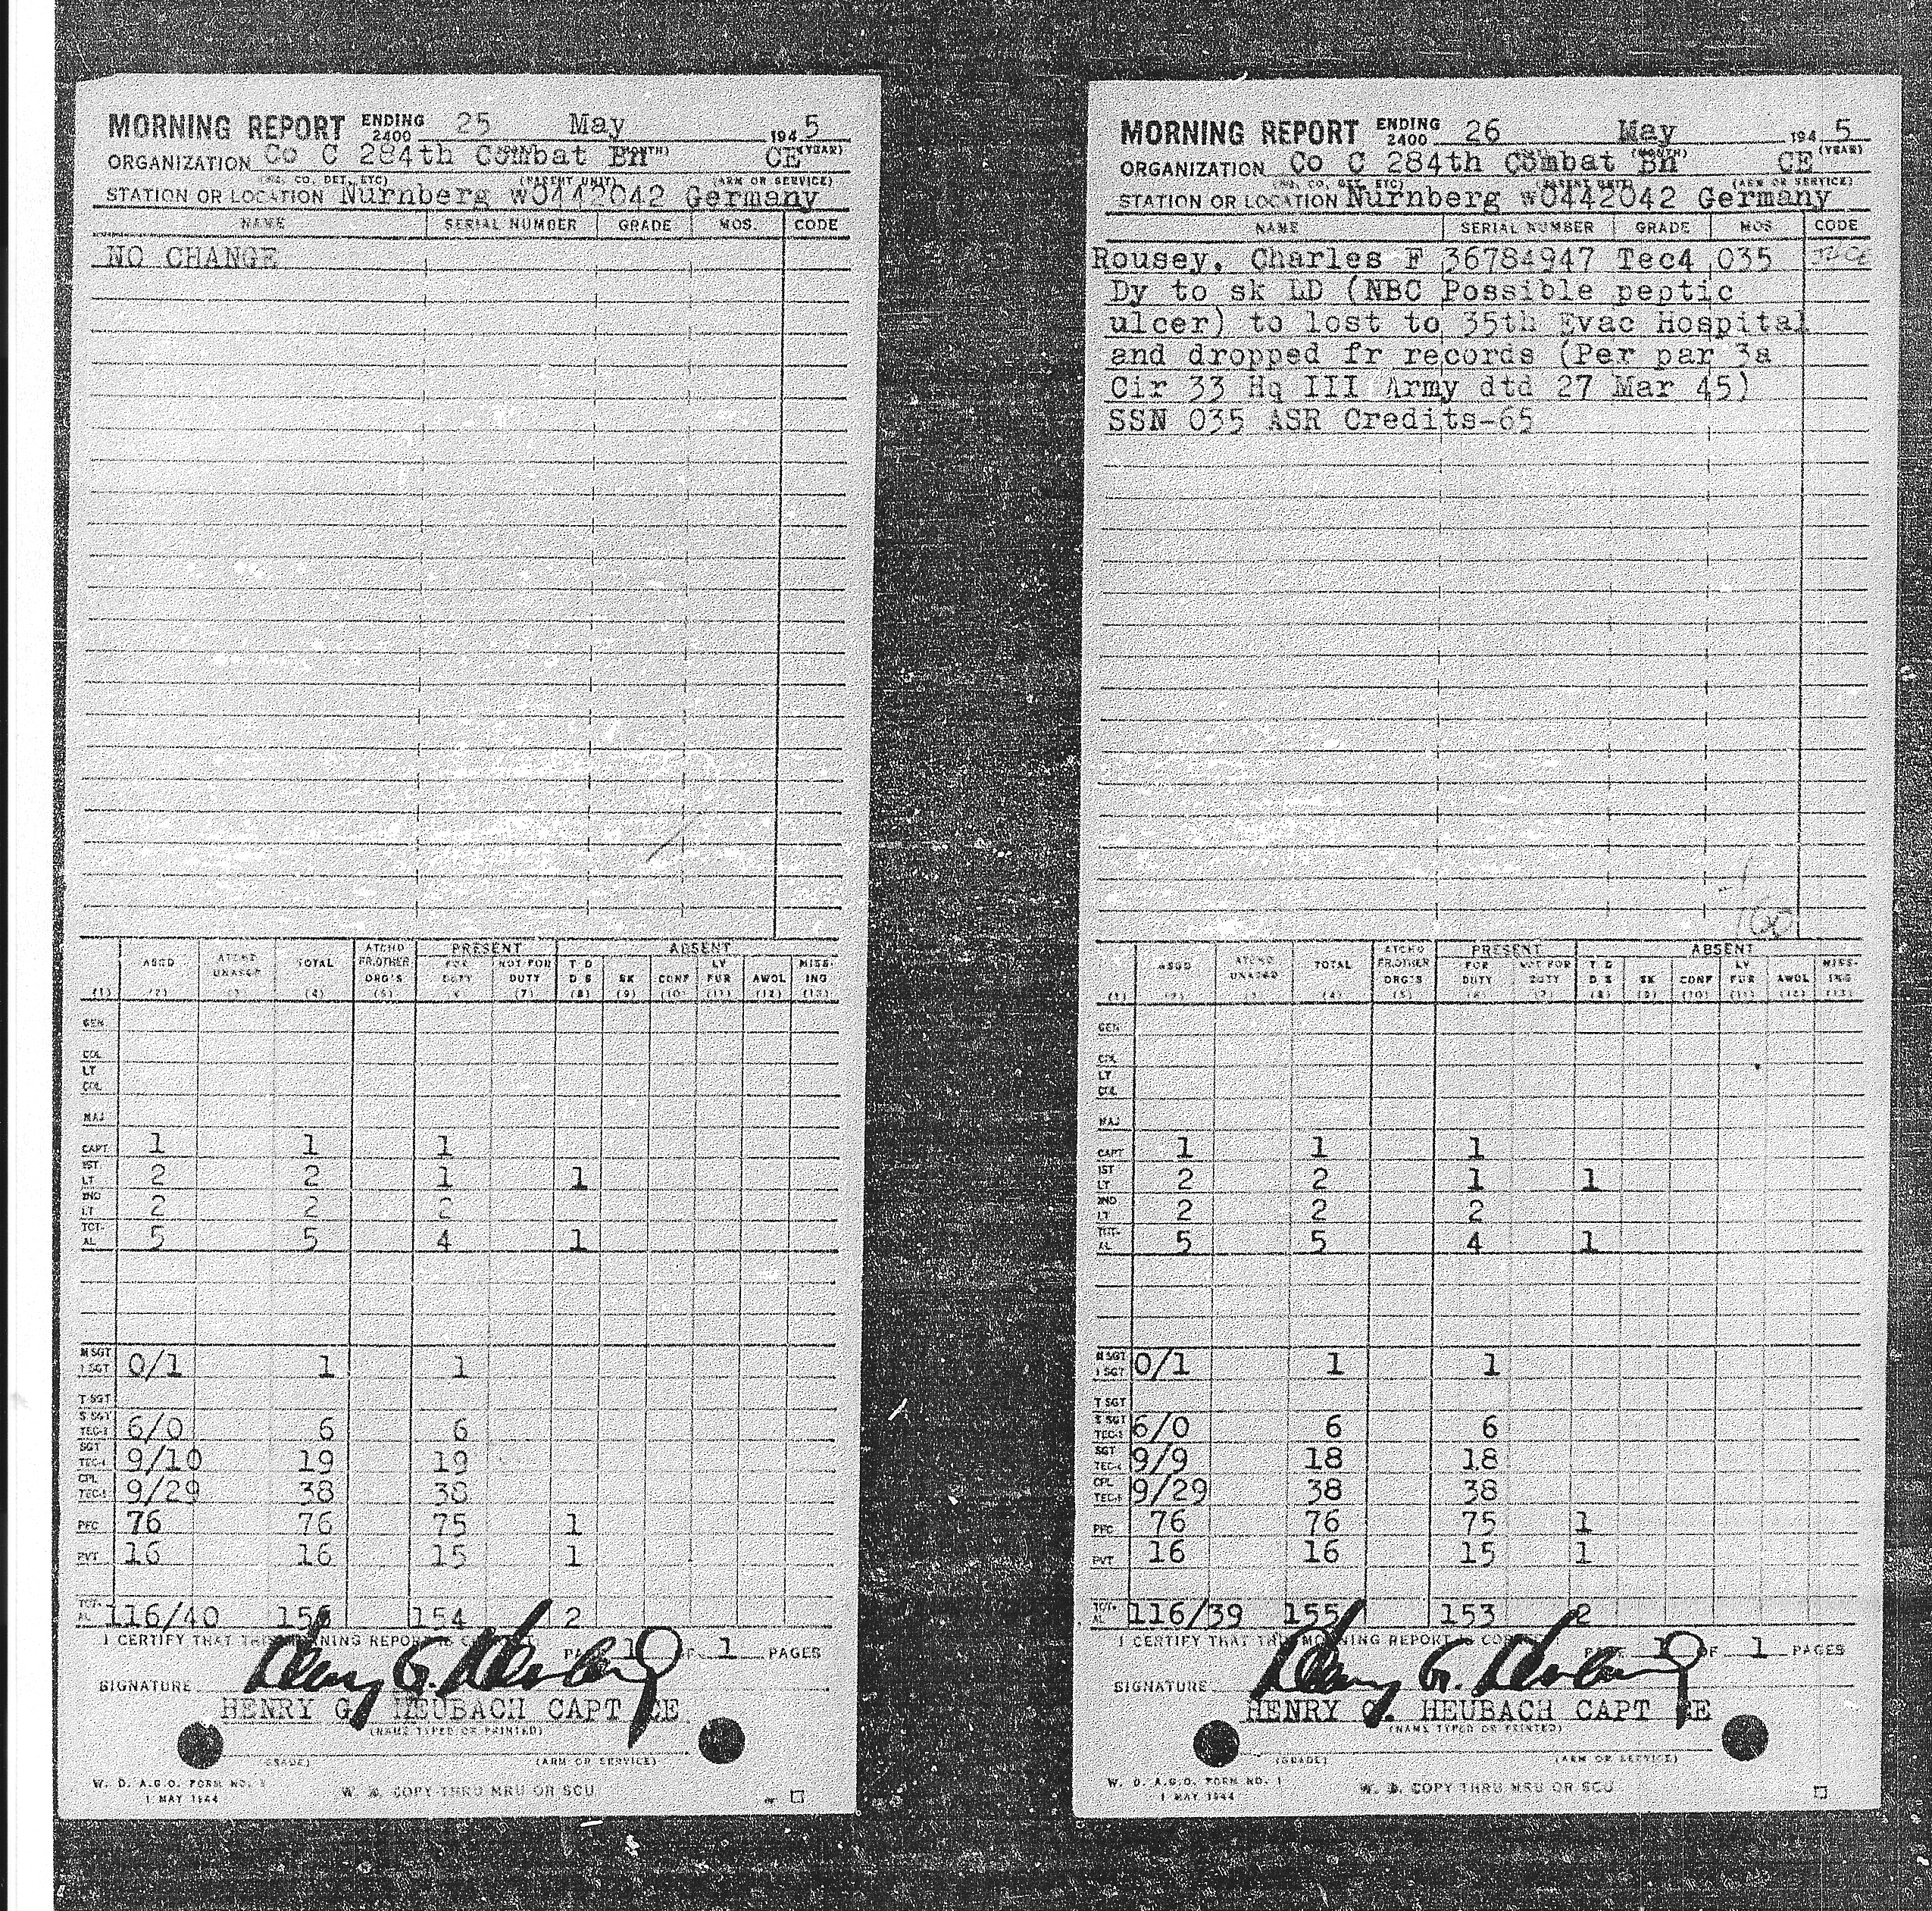 MORNING REPORT ENDING 2400 25 May 1945
(MONTH) (YEAR)
ORGANIZATION Co C 284th Combat Bn CE
(HQ., CO., DET., ETC) (PARENT UNIT) (ARM OR SERVICE)
STATION OR LOCATION Nurnberg wO442042 Germany
NAME SERIAL NUMBER GRADE MOS. CODE
NO CHANGE
ASGD ATCHD UNASGD TOTAL ATCHD FR.OTHER ORG'S PRESENT FOR DUTY NOT FOR DUTY ABSENT T D D S SK CONF LV FUR AWOL MISS- ING
(1) (2) (3) (4) (5) 6 (7) (8) (9) (10) (11) (12) (13)
GEN
COL
LT COL
MAJ
CAPT 1 1 1
1ST LT 2 2 1 1
2ND LT 2 2 2
TOT- AL 5 5 4 1
M SGT 1 SGT 0/1 1 1
T SGT
S SGT TEC-3 6/0 6 6
SGT TEC-4 9/10 19 19
CPL TEC-5 9/29 38 38
PFC 76 76 75 1
PVT 16 16 15 1
TOT- AL 116/40 156 154 2
I CERTIFY THAT THIS MORNING REPORT IS CORRECT PAGE 1 OF 1 PAGES
SIGNATURE Henry G. Heubach
HENRY G. HEUBACH CAPT CE
(NAME TYPED OR PRINTED)
(GRADE) (ARM OR SERVICE)
W. D. A.G.O. FORM NO. 1
1 MAY 1944
W. D. COPY THRU MRU OR SCU
MORNING REPORT ENDING 2400 26 May 1945
(MONTH) (YEAR)
ORGANIZATION Co C 284th Combat Bn CE
(HQ., CO., DET., ETC) (PARENT UNIT) (ARM OR SERVICE)
STATION OR LOCATION Nurnberg wO442042 Germany
NAME SERIAL NUMBER GRADE MOS CODE
Rousey, Charles F 36784947 Tec4 035
Dy to sk LD (NBC Possible peptic
ulcer) to lost to 35th Evac Hospital
and dropped fr records (Per par 3a
Cir 33 Hq III Army dtd 27 Mar 45)
SSN 035 ASR Credits-65
-1
160
ASGD ATCHD UNASGD TOTAL ATCHD FR.OTHER ORG'S PRESENT FOR DUTY NOT FOR DUTY ABSENT T D D S SK CONF LV FUR AWOL MISS- ING
(1) (2) (3) (4) (5) (6) (7) (8) (9) (10) (11) (12) (13)
GEN
COL
LT COL
MAJ
CAPT 1 1 1
1ST LT 2 2 1 1
2ND LT 2 2 2
TOT- AL 5 5 4 1
M SGT 1 SGT 0/1 1 1
T SGT
S SGT TEC-3 6/0 6 6
SGT TEC-4 9/9 18 18
CPL TEC-5 9/29 38 38
PFC 76 76 75 1
PVT 16 16 15 1
TOT- AL 116/39 155 153 2
I CERTIFY THAT THIS MORNING REPORT IS CORRECT PAGE 1 OF 1 PAGES
SIGNATURE Henry G. Heubach
HENRY G. HEUBACH CAPT CE
(NAME TYPED OR PRINTED)
(GRADE) (ARM OR SERVICE)
W. D. A.G.O. FORM NO. 1
1 MAY 1944
W. D. COPY THRU MRU OR SCU